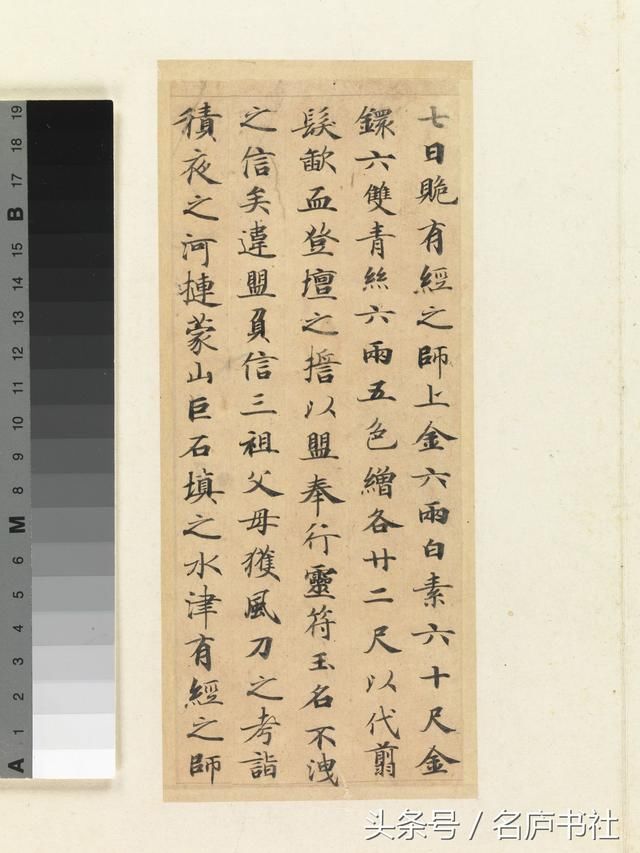 七日賍有經之師上金六兩白素六十尺金
鐶六雙青絲六兩五色繒各廿二尺以代翦
髮歃血登壇之誓以盟奉行靈符玉名不洩
之信矣違盟負信三祖父母獲風刀之考詣
積夜之河摙蒙山巨石填之水津有經之師
19
18
17
B
16
15
14
13
12
11
10
9
8
M
7
6
5
4
3
2
1
A
头条号 / 名庐书社